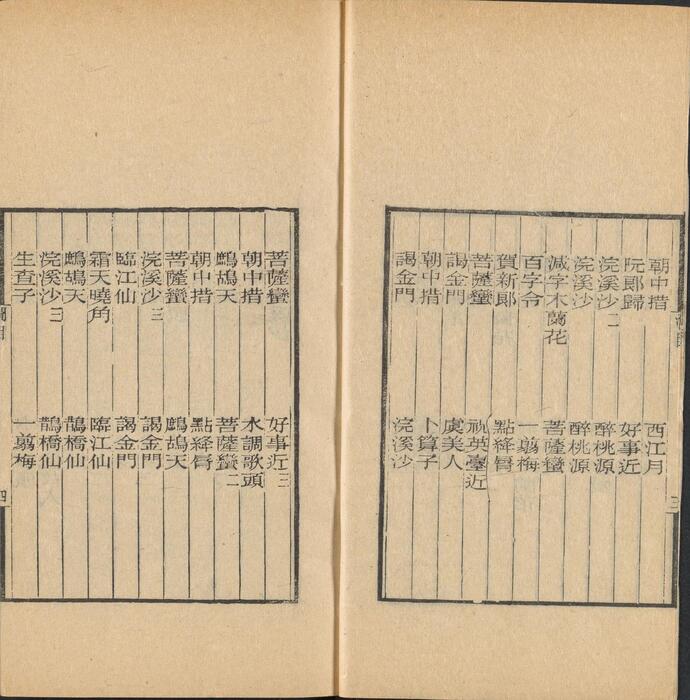 朝中措　西江月
阮郎歸　好事近
浣溪沙二　醉桃源
浣溪沙　醉桃源
減字木蘭花　菩薩蠻
百字令　一翦梅
賀新郎　點絳脣
菩薩蠻　祝英臺近
謁金門　虞美人
朝中措　卜算子
謁金門　浣溪沙
三
菩薩蠻　好事近三
朝中措　水調歌頭
鷓鴣天　菩薩蠻二
朝中措　點絳脣
菩薩蠻　鷓鴣天
浣溪沙三　謁金門
臨江仙　謁金門
霜天曉角　臨江仙
鷓鴣天　鵲橋仙
浣溪沙三　鵲橋仙
生查子　一翦梅
四